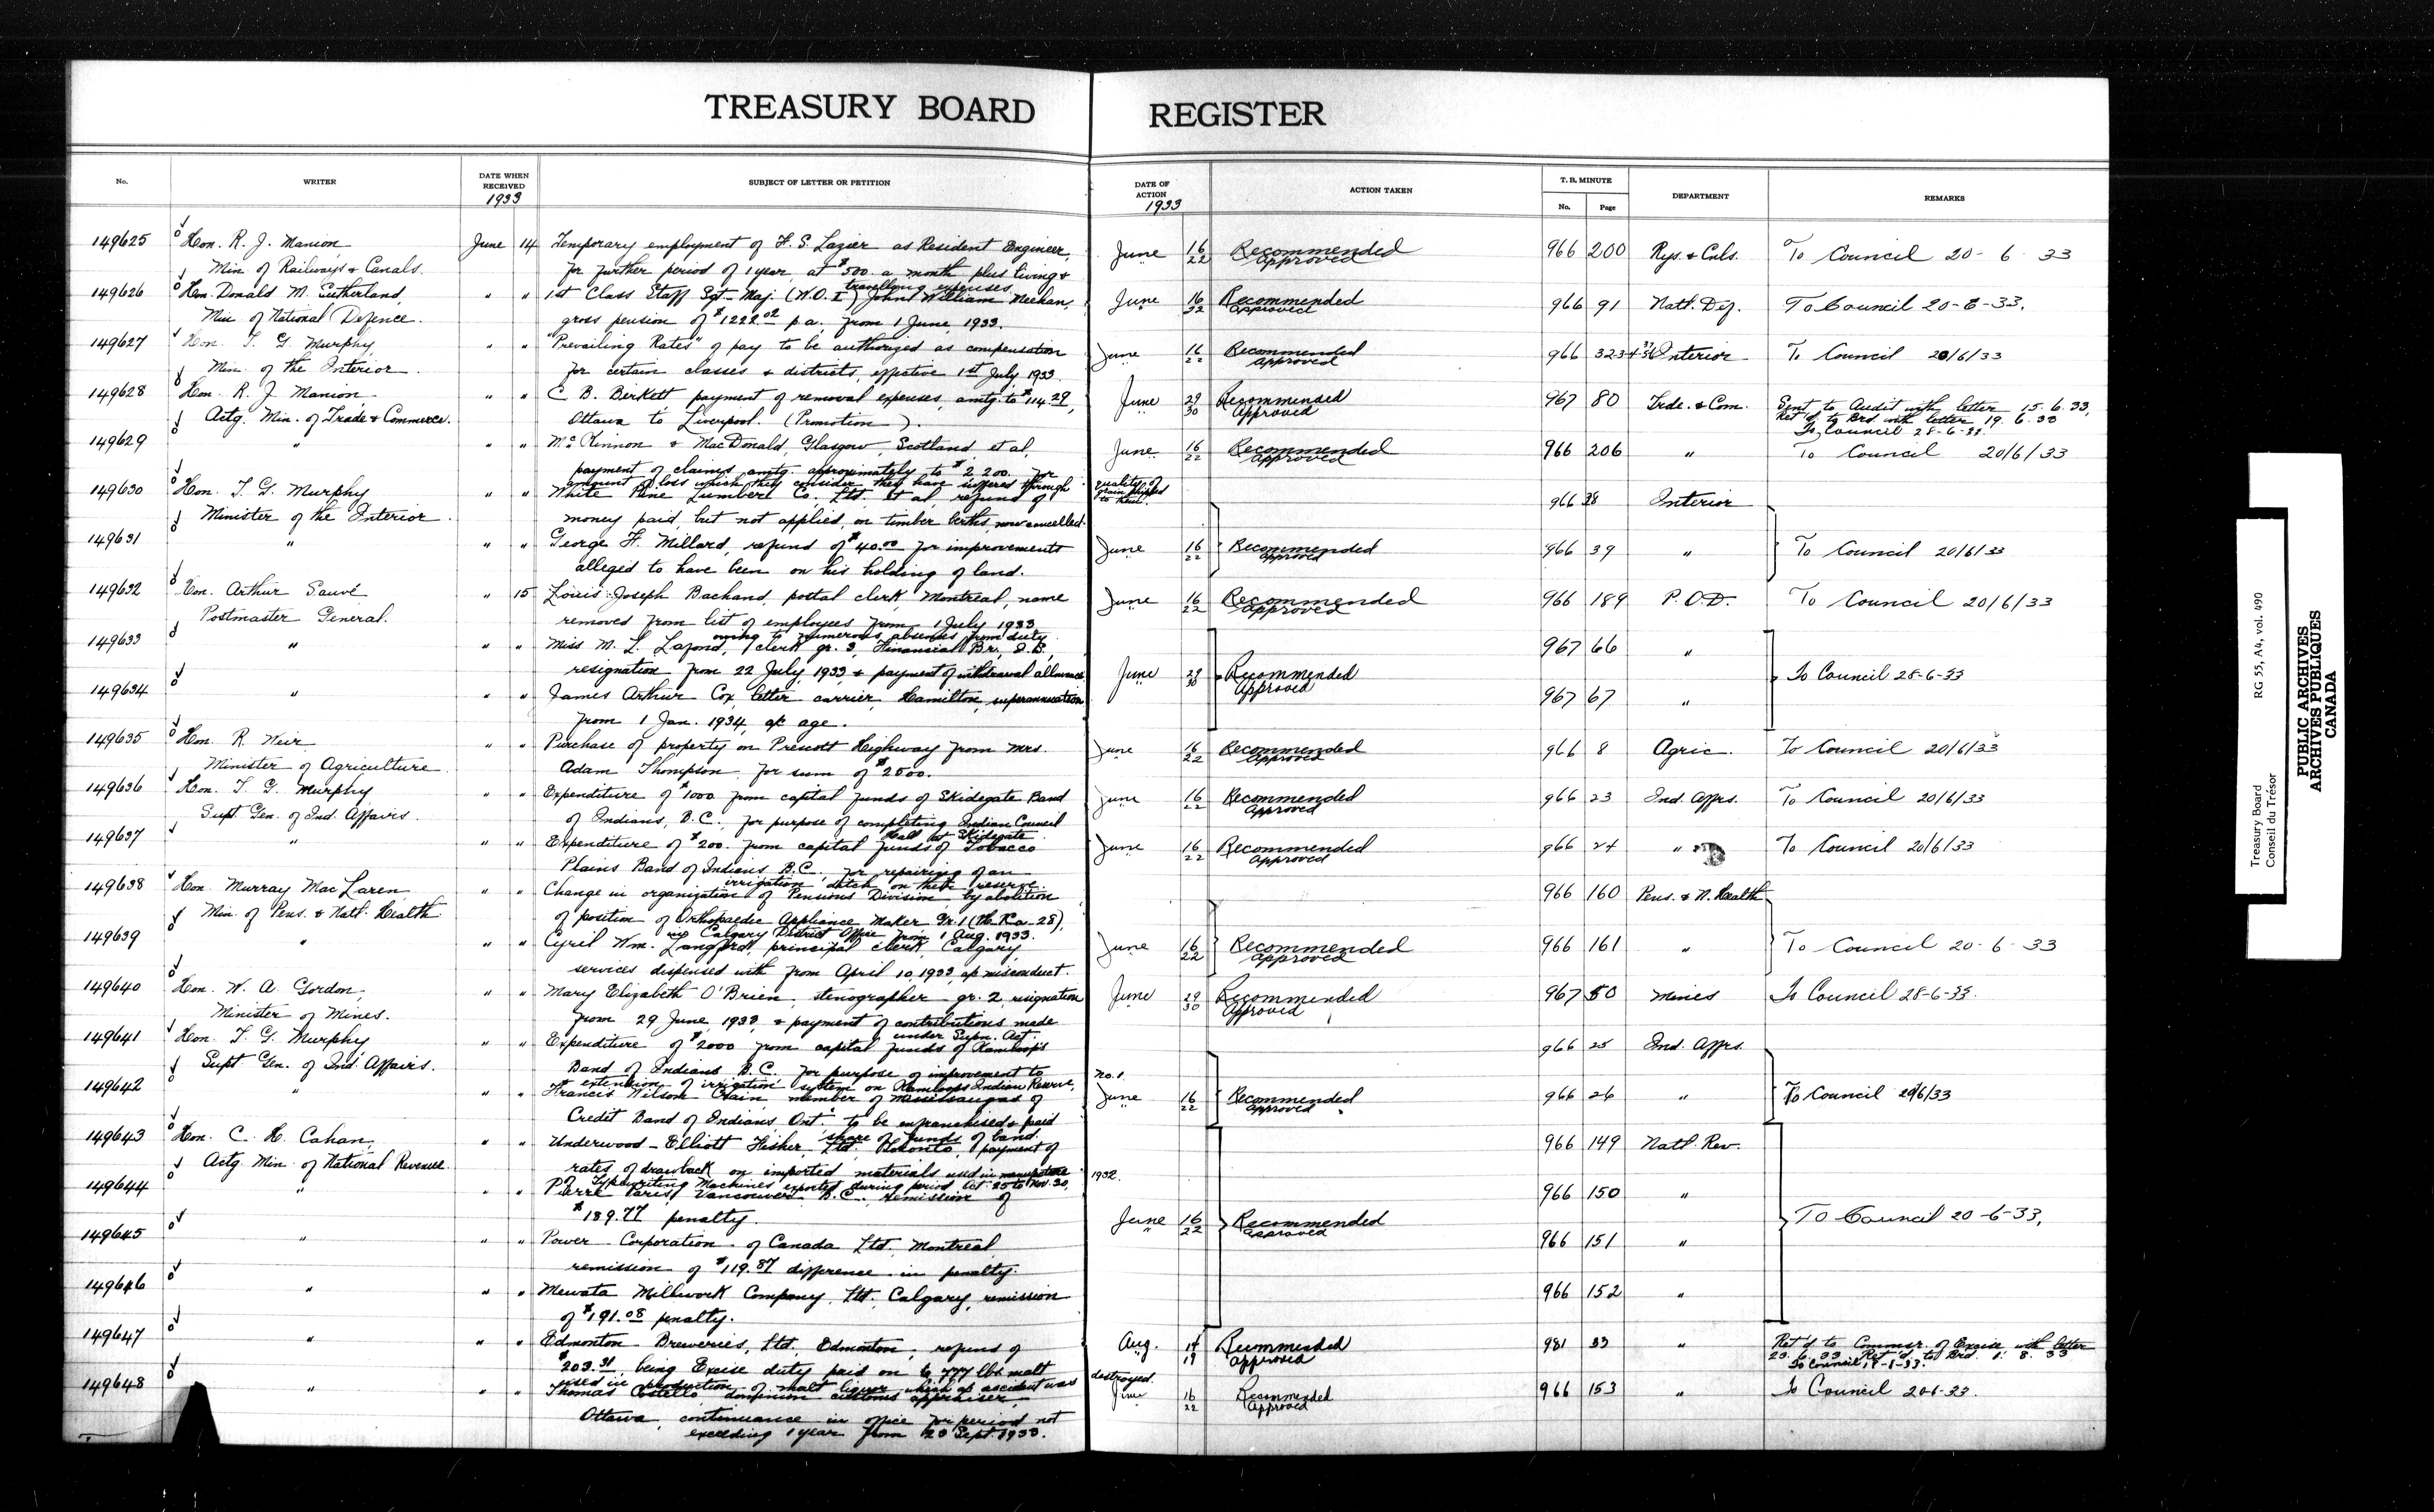 TREASURY BOARD REGISTER
No. WRITER DATE WHEN RECEIVED 1933 SUBJECT OF LETTER OR PETITION DATE OF ACTION 1933 ACTION TAKEN T. B. MINUTE No. Page DEPARTMENT REMARKS
149625 Hon. R. J. Manion June 14 Temporary employment of F. S. Lazier as Resident Engineer, June 16 Recommended 966 200 Rys. & Cnls. To Council 20-6-33
Min. of Railways & Canals. for further period of 1 year at $500. a month plus living & 22 Approved
travelling expenses
149626 Hon. Donald M. Sutherland, " " 1st Class Staff Sgt-Maj. (W.O. I) John William Meehan, June 16 Recommended 966 91 Natl. Def. To Council 20-6-33.
Min of National Defence. gross pension of $1222.02 p.a. from 1 June, 1933. 22 Approved
149627 Hon. T. G. Murphy " " "Prevailing Rates" of pay to be authorized as compensation June 16 Recommended 966 323 Interior To Council 20/6/33
Min. of the Interior. for certain classes & districts, effective 1st July, 1933. 22 Approved
149628 Hon. R. J. Manion " " C. B. Birkett payment of removal expenses, amtg. to $114.29, June 29 Recommended 967 80 Trde. & Com. Sent to Audit with letter 15.6.33,
Actg. Min. of Trade & Commerce. Ottawa to Liverpool. (Promotion). 30 Approved Ret'd to Brd. with letter 19.6.33
To Council 28-6-33.
149629 " " " McKinnon & MacDonald, Glasgow, Scotland, et al, June 16 Recommended 966 206 " To Council 20/6/33
payment of claims amtg. approximately to $2,200. for 22 Approved
amount of loss which they consider they have suffered through quality of grain shipped to them.
149630 Hon. T. G. Murphy " " White Pine Lumber Co. Ltd. et al, refund of 966 38 Interior
Minister of the Interior. money paid, but not applied, on timber berths, now cancelled.
149631 " " " George H. Millard, refund of $40.00 for improvements June 16 Recommended 966 39 " To Council 20/6/33
alleged to have been on his holding of land. 22 Approved
149632 Hon. Arthur Sauvé " 15 Louis Joseph Bachand, postal clerk, Montreal, name June 16 Recommended 966 189 P.O.D. To Council 20/6/33
Postmaster General. removed from list of employees from 1 July 1933 22 Approved
owing to numerous absences from duty.
149633 " " " Miss M. L. Lafond, clerk gr. 3, Financial Br., S.B., 967 66 "
resignation from 22 July, 1933 & payment of withdrawal allowance June 29 Recommended To Council 28-6-33
149634 " " " James Arthur Cox, letter carrier, Hamilton, superannuation 30 Approved 967 67 "
from 1 Jan. 1934, a/c age.
149635 Hon. R. Weir " " Purchase of property on Prescott Highway from Mrs. June 16 Recommended 966 8 Agric. To Council 20/6/33
Minister of Agriculture Adam Thompson, for sum of $2500. 22 Approved
149636 Hon. T. G. Murphy " " Expenditure of $1000 from capital funds of Skidegate Band June 16 Recommended 966 23 Ind. Affrs. To Council 20/6/33
Supt. Gen. of Ind. Affairs. of Indians, B.C., for purpose of completing Indian Council 22 Approved
Hall at Skidegate.
149637 " " " Expenditure of $200. from capital funds of Tobacco June 16 Recommended 966 24 " To Council 20/6/33
Plains Band of Indians B.C. for repairing of an 22 Approved
irrigation ditch on their reserve.
149638 Hon. Murray MacLaren " " Change in organization of Pensions Division by abolition 966 160 Pens. & N. Health
Min. of Pens. & Natl. Health of position of Orthopaedic Appliance Maker Gr. 1
Calgary District Office from 1 Aug. 1933.
149639 " " " Cyril Wm. Langford, principal clerk, Calgary, June 16 Recommended 966 161 " To Council 20-6-33
services dispensed with from April 10, 1933, a/c misconduct. 22 Approved
149640 Hon. W. A. Gordon, " " Mary Elizabeth O'Brien, stenographer gr. 2, resignation June 29 Recommended 967 50 Mines To Council 28-6-33.
Minister of Mines. from 29 June 1933, & payment of contributions made 30 Approved
under Supn. Act.
149641 Hon. T. G. Murphy " " Expenditure of $2000 from capital funds of Kamloops 966 25 Ind. Affrs.
Supt. Gen. of Ind. Affairs. Band of Indians B.C. for purpose of improvement to
extension of irrigation system on Kamloops Indian Reserve, No. 1.
149642 " " " Francis Wilson Crain member of Mississaugas of June 16 Recommended 966 26 " To Council 20/6/33
Credit Band of Indians, Ont. to be enfranchised & paid 22 Approved
share of funds of band.
149643 Hon. C. H. Cahan, " " Underwood-Elliott Fisher, Ltd. Toronto, payment of 966 149 Natl. Rev.
Actg. Min. of National Revenue. rates of drawback on imported materials used in manufacture
of Typewriting Machines exported during period Oct. 25 to Nov. 30, 1932.
149644 " " " Pierre Paris, Vancouver, B.C. remission of 966 150 "
$189.77 penalty. June 16 Recommended To Council 20-6-33,
149645 " " " Power Corporation of Canada Ltd. Montreal 22 Approved 966 151 "
remission of $119.87 difference in penalty.
149646 " " " Mewata Millwork Company, Ltd., Calgary, remission 966 152 "
of $191.08 penalty.
149647 " " " Edmonton Breweries, Ltd. Edmonton, refund of Aug. 14 Recommended 981 33 " Ret'd to Commr. of Excise with letter
$203.31 being Excise duty paid on 6,777 lbs. malt 19 Approved 23.6.33 Ret'd to Brd. 1.8.33
used in production of malt liquor which a/c accident was destroyed. To Council 17-8-33.
149648 " " " Thomas Costello, dominion customs appraiser, June 16 Recommended 966 153 " To Council 20-6-33.
Ottawa, continuance in office for period not 22 Approved
exceeding 1 year from 20 Sept. 1933.
Treasury Board RG 55, A4, vol. 490
Conseil du Trésor
PUBLIC ARCHIVES
ARCHIVES PUBLIQUES
CANADA